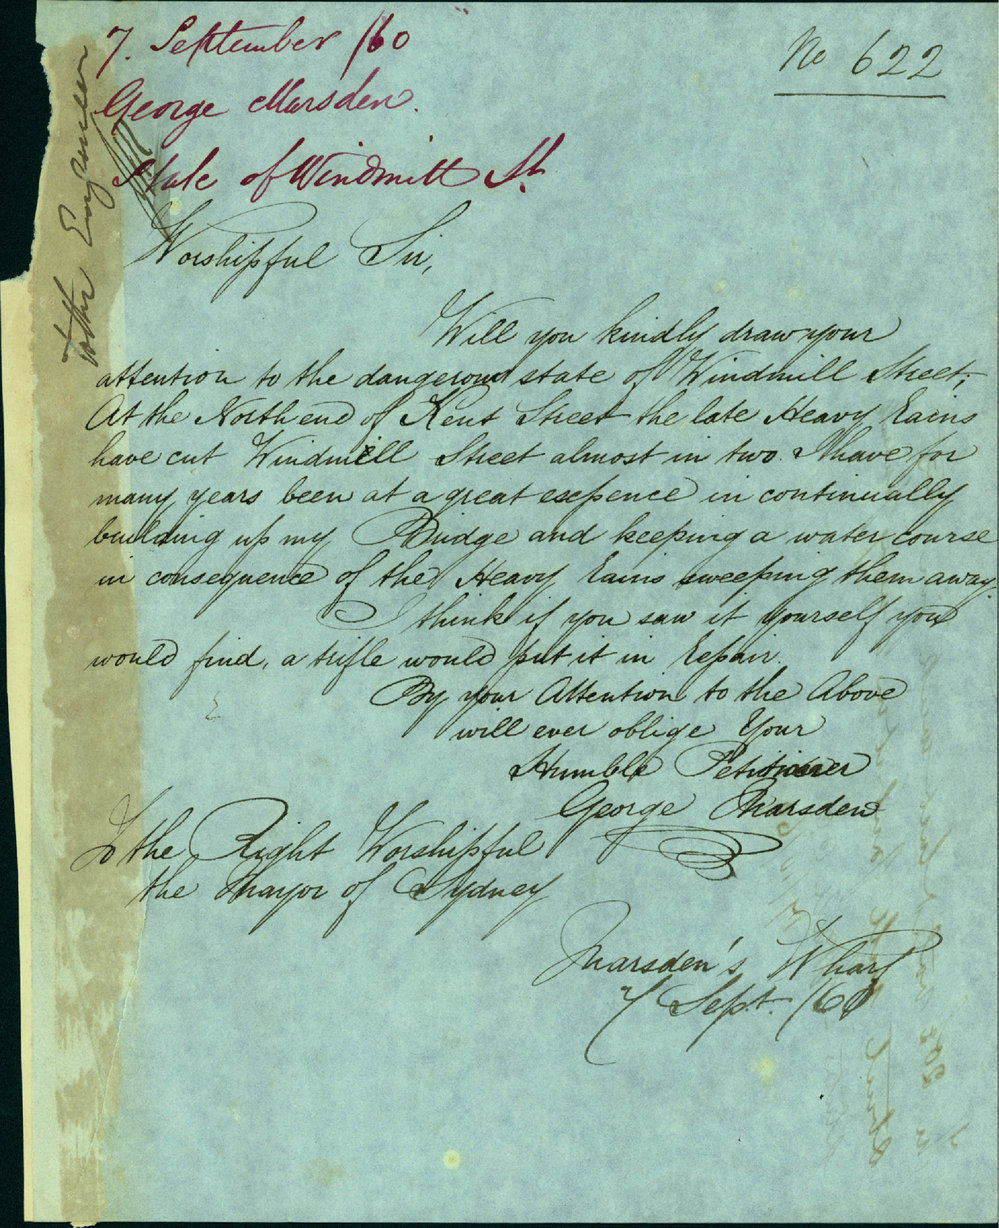 7. September /60
George Marsden.
State of Windmill St.
No 622
to the Engineer
Worshipful Sir,
Will you kindly draw your
attention to the dangerous state of Windmill Street,
At the North end of Kent Street the late Heavy Rains
have cut Windmill Street almost in two. I have for
many years been at a great escpence in continually
building up my Bridge and keeping a water course
in consequence of the Heavy Rains sweeping them away
I think if you saw it yourself you
would find, a trifle would put it in Repair.
By your Attention to the Above
will ever oblige Your
Humble Petitioner
George Marsden
To the Right Worshipful
the Mayor of Sydney
Marsden's Wharf
7 Sept. /60